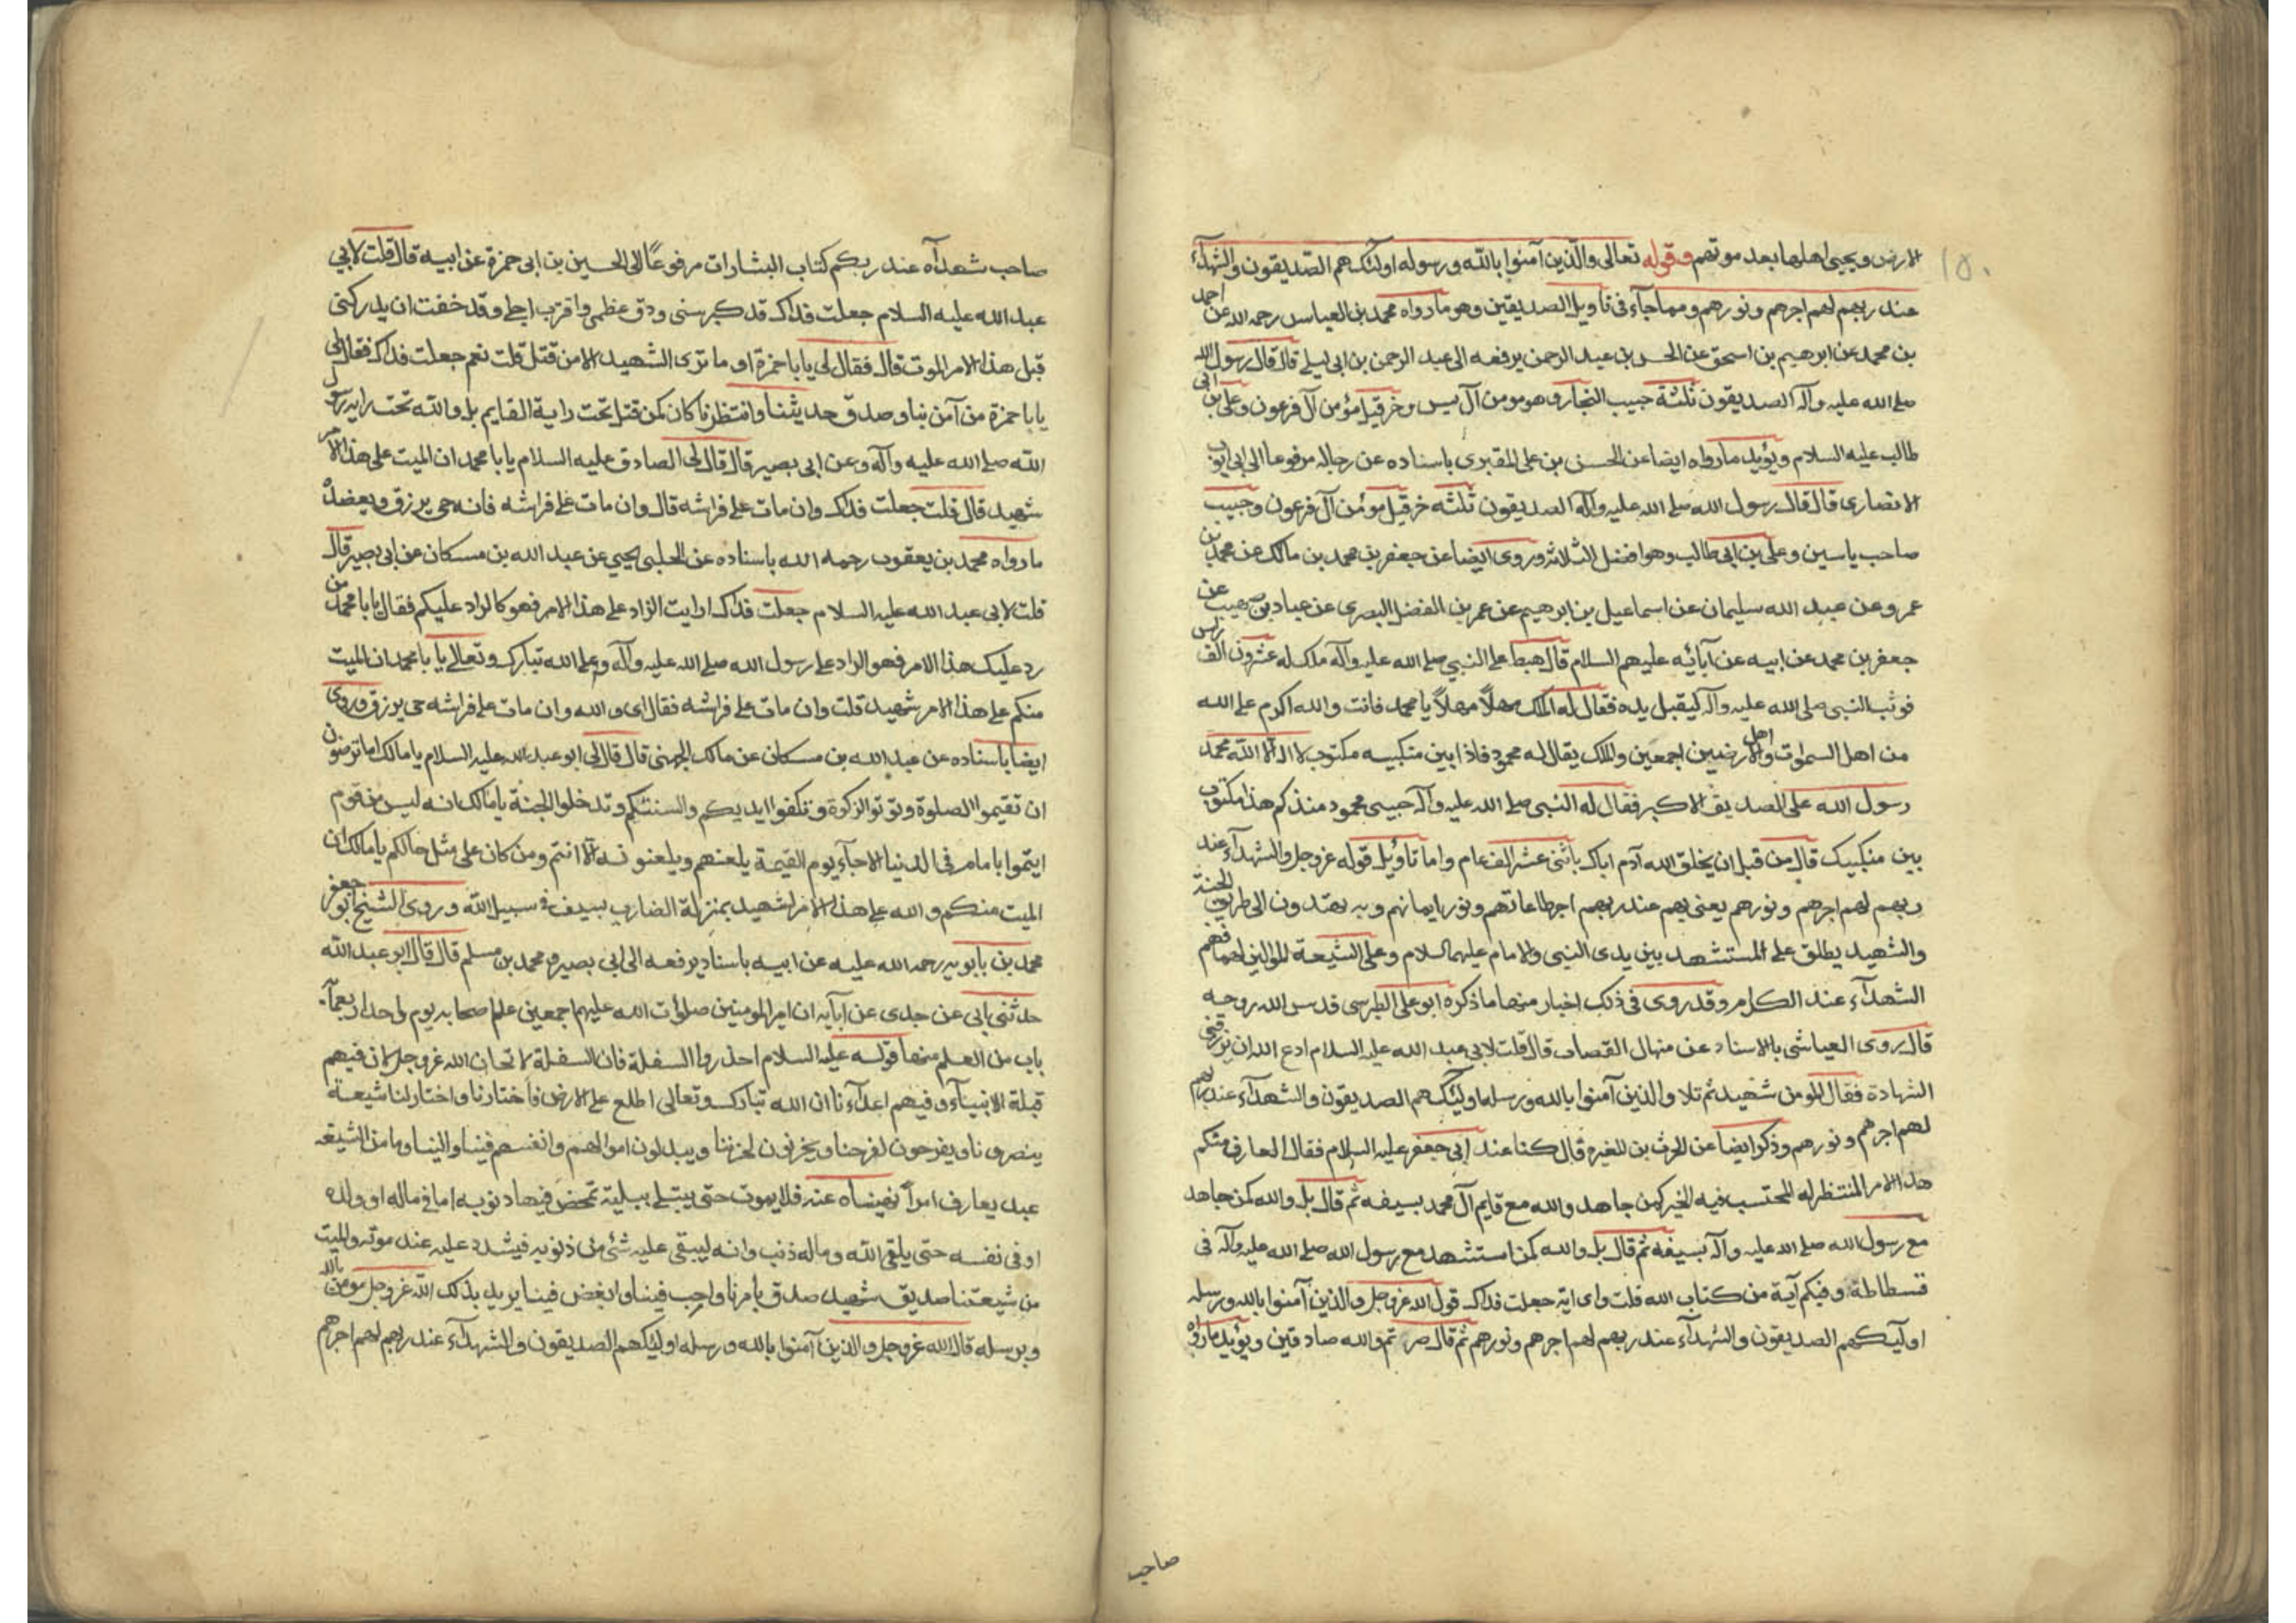 ١٥٠
الارض ويحيى اهلها بعد موتهم وقوله تعالى والذين آمنوا بالله ورسوله اولئك هم الصديقون والشهدآء
عند ربهم لهم اجرهم ونورهم ومما جآء فى تاويل الصديقين وهو ما رواه محمد بن العباس رحمه الله عن احمد
بن محمد عن ابرهيم بن اسحق عن الحسن بن عبد الرحمن يرفعه الى عبد الرحمن بن ابى ليلى قال قال رسول الله
صلى الله عليه وآله الصديقون ثلثة حبيب النجار وهو مومن آل يس وخرقيل مؤمن آل فرعون وعلى بن ابى
طالب عليه السلام ويؤيد ما رواه ايضا عن الحسن بن على المقبرى باسناده عن رجاله مرفوعا الى ابى ايوب
الانصارى قال قال رسول الله صلى الله عليه وآله الصديقون ثلثه خرقيل مومن آل فرعون وحبيب
صاحب ياسين وعلى بن ابى طالب وهو افضل الثلاثه وروى ايضا عن جعفر بن محمد بن مالك عن محمد بن
عمرو عن عبد الله سليمان عن اسماعيل بن ابرهيم عن عمر بن الفضل البصرى عن عباد بن صهيب عن
جعفر بن محمد عن ابيه عن آبائه عليهم السلام قال هبط على النبى صلى الله عليه وآله ملك له عشرون الف راس
فوثب النبى صلى الله عليه وآله ليقبل يده فقال له الملك مهلاً مهلاً يا محمد فانت والله اكرم على الله
من اهل السموات واهل الارضين اجمعين والملك يقال له محمود فاذا بين منكبيه مكتوب لا اله الا الله محمد
رسول الله على الصديق الاكبر فقال له النبى صلى الله عليه وآله حبيبى محمود منذ كم هذا مكتوب
بين منكبيك قال من قبل ان يخلق الله آدم اباك باثنى عشر الف عام واما تاويل قوله عز وجل والشهدآء عند
ربهم لهم اجرهم ونورهم يعنى بهم عند ربهم اجر طاعاتهم ونور ايمانهم وبه يهتدون الى طريق الجنة
والشهيد يطلق على المستشهد بين يدى النبى والامام عليهما السلام وعلى الشيعة الموالين لهما فهم
الشهدآء عند الكلام وقد روى فى ذلك اخبار منها ما ذكره ابو على الطبرسى قدس الله روحه
قال روى العياشى بالاسناد عن منهال القصاب قال قلت لابى عبد الله عليه السلام ادع الله ان يرزقنى
الشهادة فقال المومن شهيد ثم تلا والذين آمنوا بالله ورسله اولئك هم الصديقون والشهدآء عند ربهم
لهم اجرهم ونورهم وذكر ايضا عن الحرث بن المغيره قال كنا عند ابى جعفر عليه السلام فقال العارف منكم
هذا الامر المنتظر له المحتسب فيه الخير كمن جاهد والله مع قايم آل محمد بسيفه ثم قال بل والله كمن جاهد
مع رسول الله صلى الله عليه وآله بسيفه ثم قال بل والله كمن استشهد مع رسول الله صلى الله عليه وآله فى
فسطاطه وفيكم آية من كتاب الله قلت واى اية جعلت فداك قول الله عز وجل والذين آمنوا بالله ورسله
اولئك هم الصديقون والشهدآء عند ربهم لهم اجرهم ونورهم ثم قال صرتم والله صادقين ويؤيد ما رواه
صاحب
صاحب شهدآء عند ربكم كتاب البشارات مرفوعاً الى الحسين بن ابى حمزة عن ابيه قال قلت لابى
عبد الله عليه السلام جعلت فداك قد كبر سنى ودق عظمى واقترب اجلى وقد خفت ان يدركنى
قبل هذا الامر الموت قال فقال لى يا با حمزة او ما ترى الشهيد الا من قتل قلت نعم جعلت فداك فقال لى
يا با حمزة من آمن بنا وصدق حديثنا وانتظرنا كان كمن قتل تحت راية القايم بل والله تحت راية رسول
الله صلى الله عليه وآله وعن ابى بصير قال قال لى الصادق عليه السلام يا با محمد ان الميت على هذا الامر
شهيد قال قلت جعلت فداك وان مات على فراشه قال وان مات على فراشه فانه حى يرزق ويعضده
ما رواه محمد بن يعقوب رحمه الله باسناده عن الحلبى يحيى عن عبد الله بن مسكان عن ابى بصير قال
قلت لابى عبد الله عليه السلام جعلت فداك ارايت الراد على هذا الامر فهو كالراد عليكم فقال يا با محمد من
رد عليك هذا الامر فهو الراد على رسول الله صلى الله عليه وآله وعلى الله تبارك وتعالى يا با محمد ان الميت
منكم على هذا الامر شهيد قلت وان مات على فراشه فقال اى والله وان مات على فراشه حى يرزق وروى
ايضا باسناده عن عبد الله بن مسكان عن مالك الجهنى قال قال لى ابو عبد الله عليه السلام يا مالك اما ترضون
ان تقيموا الصلوة وتوتوا الزكوة وتكفوا ايديكم والسنتكم وتدخلوا الجنة يا مالك انه ليس من قوم
ايتموا بامام فى الدنيا الا جآء يوم القيمة يلعنهم ويلعنونه الا انتم ومن كان على مثل حالكم يا مالك ان
الميت منكم والله على هذا الامر لشهيد بمنزلة الضارب بسيف فى سبيل الله وروى الشيخ ابو جعفر
محمد بن بابويه رحمه الله عليه عن ابيه باسناد يرفعه الى ابى بصير ومحمد بن مسلم قال قال ابو عبد الله
حدثنى ابى عن جدى عن آبآيه ان امير المومنين صلوات الله عليهم اجمعين علم اصحابه يوم واحد اربعمآئه
باب من العلم منها قوله عليه السلام احذروا السفلة فان السفلة لا تخاف الله عز وجل لان فيهم
قتلة الانبيآء وفيهم اعدآءنا ان الله تبارك وتعالى اطلع على الارض فاختارنا واختار لنا شيعة
ينصرونا ويفرحون لفرحنا ويحزنون لحزننا ويبدلون اموالهم وانفسهم فينا والينا وما من الشيعه
عبد يعارف امراً نهيناه عنه فلا يموت حتى يبتلى ببلية تمحض فيها ذنوبه اما فى ماله او ولده
او فى نفسه حتى يلقى الله وماله ذنب وانه ليبقى عليه شئ من ذنوبه فيشدد عليه عند موته والميت
من شيعتنا صديق شهيد صدق بامرنا واحب فينا وابغض فينا يريد بذلك الله عز وجل مومن بالله
وبرسله قال الله عز وجل والذين آمنوا بالله ورسله اولئك هم الصديقون والشهدآء عند ربهم لهم اجرهم